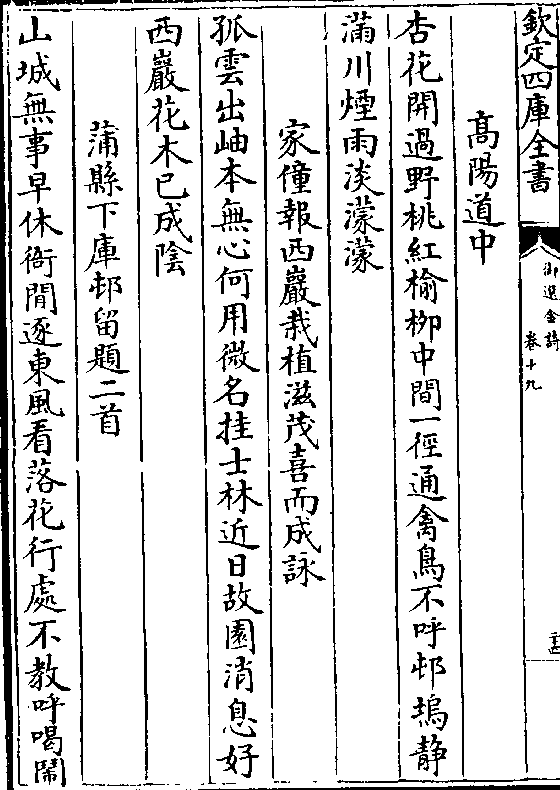 欽定四庫全書
御選金詩
卷十九
高陽道中
杏花開過野桃紅榆栁中間一徑通禽鳥不呼邨塢静
滿川煙雨淡濛濛
家僮報西巖栽植滋茂喜而成詠
孤雲出岫本無心何用微名挂士林近日故園消息好
西巖花木已成陰
蒲縣下庫邨留題二首
山城無事早休衙閒逐東風看落花行處不教呼喝鬧